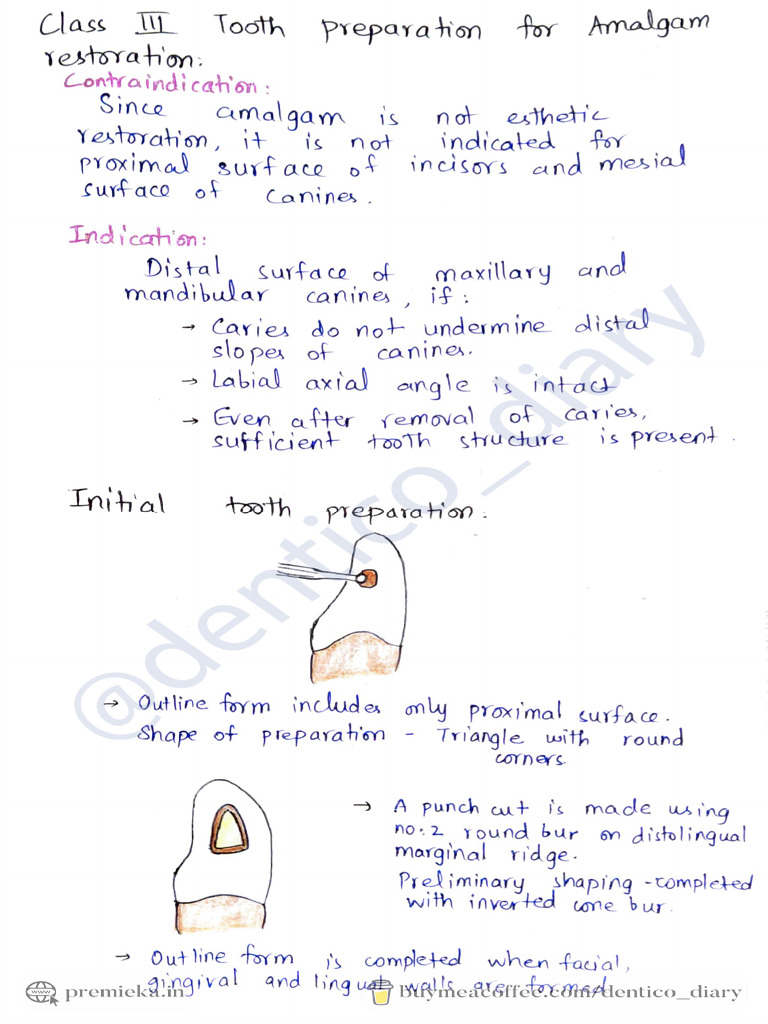 Class III Tooth preparation for Amalgam
restoration:
Contraindication:
Since amalgam is not esthetic
restoration, it is not indicated for
proximal surface of incisors and mesial
surface of canines.
Indication:
Distal surface of maxillary and
mandibular canines, if:
→ Caries do not undermine distal
slopes of canines.
→ Labial axial angle is intact
→ Even after removal of caries,
sufficient tooth structure is present.
Initial tooth preparation:
→ Outline form includes only proximal surface.
Shape of preparation - Triangle with round
corners.
→ A punch cut is made using
no:2 round bur on distolingual
marginal ridge.
Preliminary shaping - completed
with inverted cone bur.
→ Outline form is completed when facial,
gingival and lingual walls are formed
@dentico_diary
premieka.in
buymeacoffee.com/dentico_diary